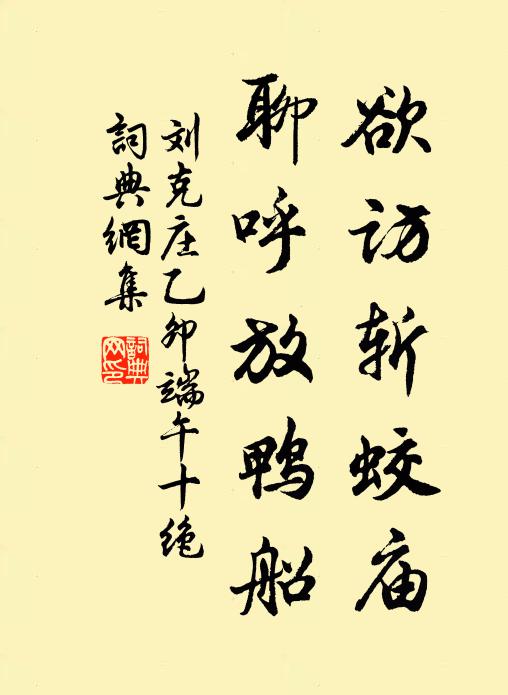 欲访斩蛟庙
聊呼放鸭船
刘克庄乙卯端午十绝
词典網集
詞典网印